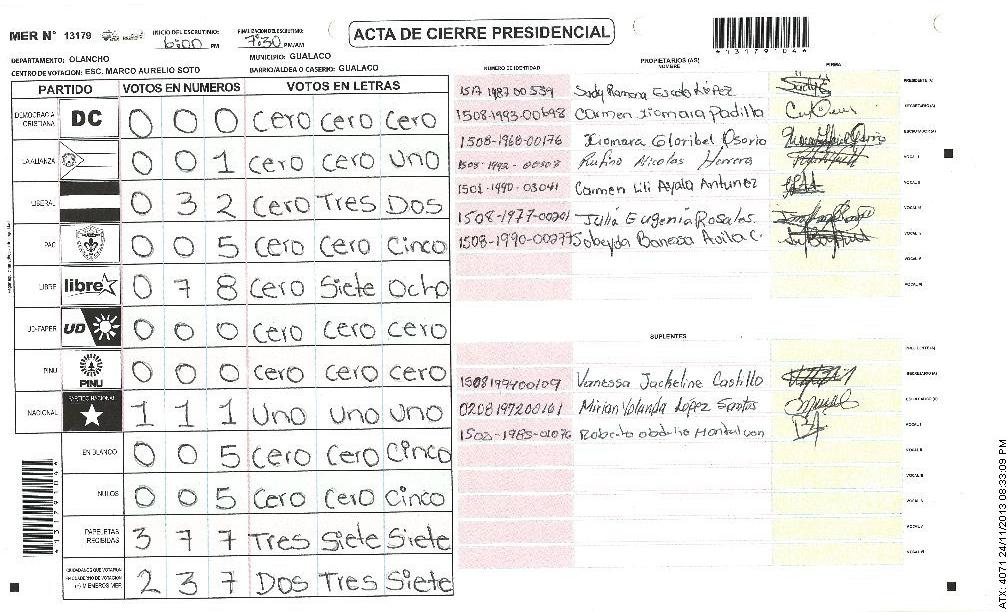 MER N° 13179
INICIO DEL ESCRUTINIO:
6:00 PM
FINALIZACION DEL ESCRUTINIO:
7:30 PM/AM
ACTA DE CIERRE PRESIDENCIAL
13179044
DEPARTAMENTO: OLANCHO
MUNICIPIO: GUALACO
CENTRO DE VOTACION: ESC. MARCO AURELIO SOTO
BARRIO/ALDEA O CASERIO: GUALACO
PARTIDO VOTOS EN NUMEROS VOTOS EN LETRAS
DEMOCRACIA CRISTIANA DC 0 0 0 Cero Cero Cero
LA ALIANZA 0 0 1 Cero Cero Uno
LIBERAL 0 3 2 Cero Tres Dos
PAC 0 0 5 Cero Cero Cinco
LIBRE libre 0 7 8 Cero Siete Ocho
UD-FAPER UD 0 0 0 Cero Cero Cero
PINU PINU 0 0 0 Cero Cero Cero
NACIONAL PARTIDO NACIONAL 1 1 1 Uno Uno Uno
EN BLANCO 0 0 5 Cero Cero Cinco
NULOS 0 0 5 Cero Cero Cinco
PAPELETAS RECIBIDAS 3 7 7 Tres Siete Siete
CIUDADANOS QUE VOTARON EN CUADERNO DE VOTACION (+) MIEMBROS MER 2 3 7 Dos Tres Siete
PROPIETARIOS (AS)
NUMERO DE IDENTIDAD NOMBRE FIRMA
1517 1987 00539 Sudy Ramona Escoto López PRESIDENTE (A)
1508-1993-00698 Carmen Xiomara Padilla SECRETARIO (A)
1508-1968-00176 Xiomara Gloribel Osorio ESCRUTADOR (A)
1508-1992-00308 Rufino Nicolas Herrera VOCAL I
1501-1990-03041 Carmen Lili Ayala Antunez VOCAL II
1508-1977-00201 Julia Eugenia Rosales
1508-1990-00277 Sobeyda Banessa Avila C.
SUPLENTES
PRESIDENTE (A)
1508199400109 Vanessa Jackeline Castillo SECRETARIO (A)
0208197200161 Mirian Yolanda López Santos ESCRUTADOR (A)
1503-1985-01076 Roberto VOCAL I
VOCAL II
ATX: 4071 24/11/2013 08:33:09 PM